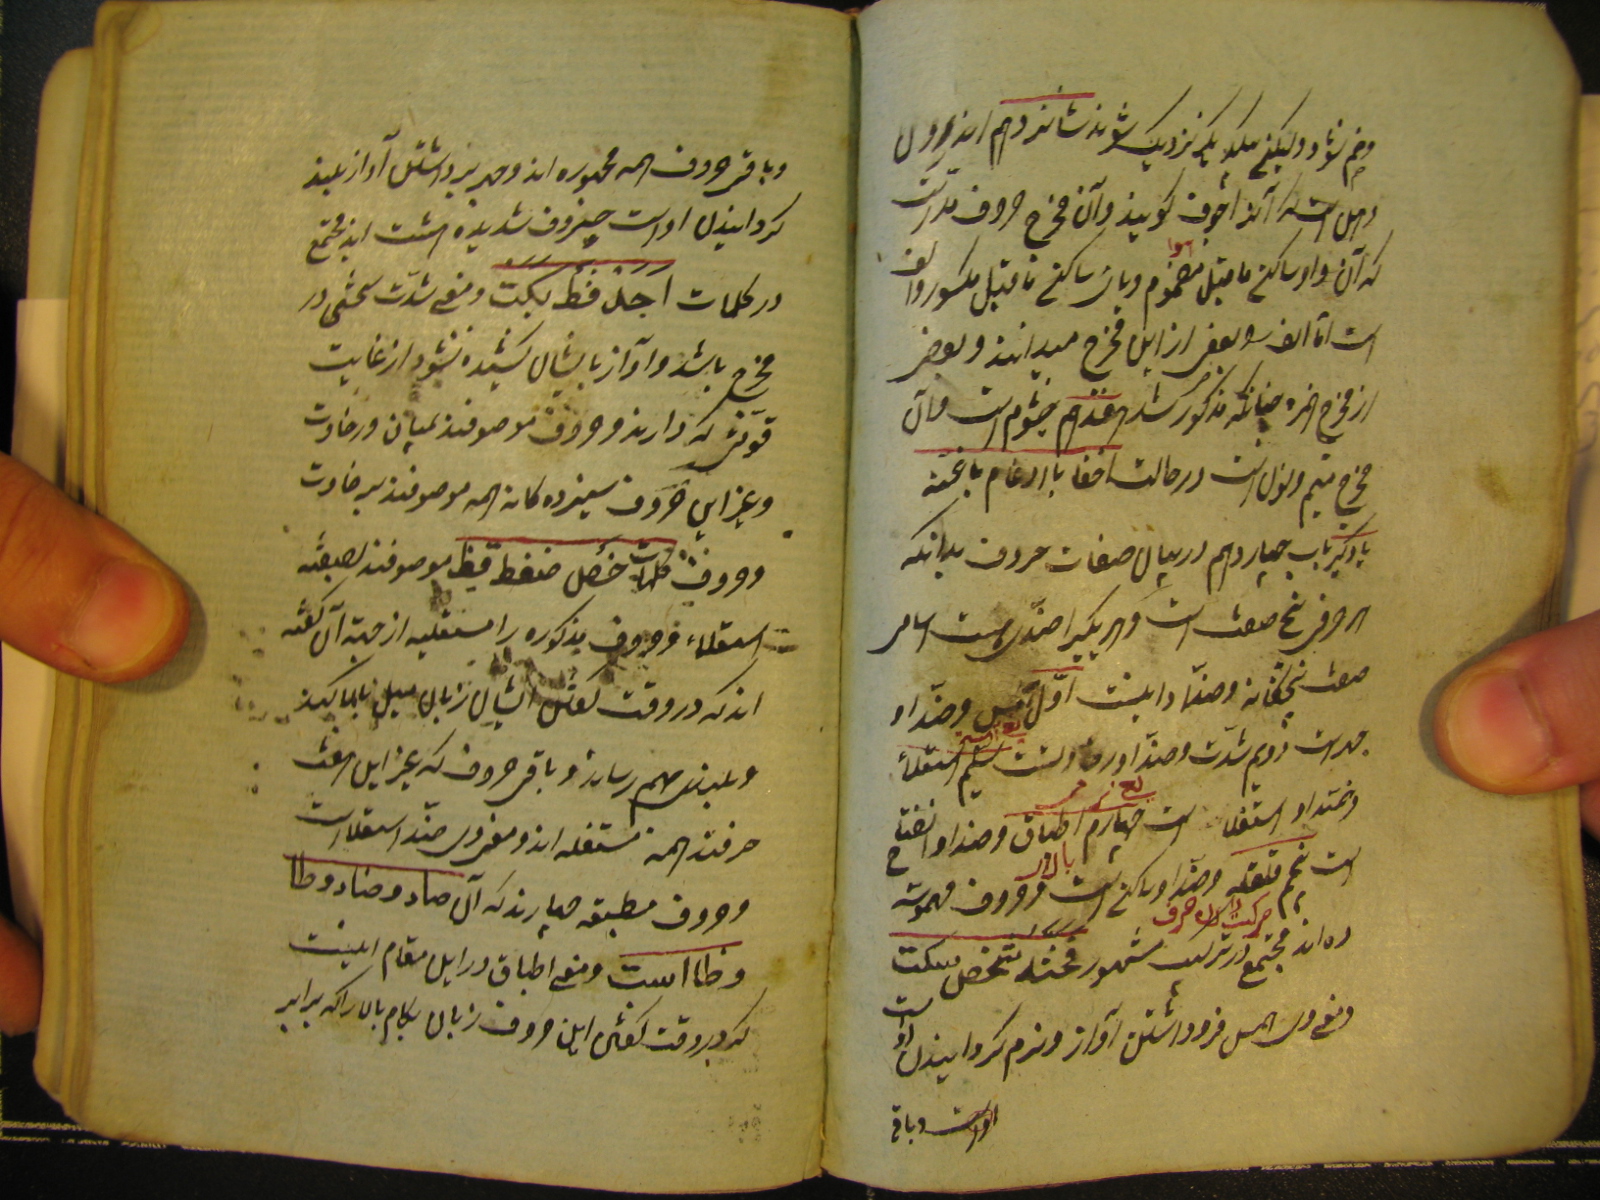 وضم نشود ولیکن بیکدیگر نزدیک شوند شانزدهم اندرون
دهن است که آنرا جوف گویند وآن مخرج حروف مد است
که آن واو ساکن ما قبل مضموم ویای ساکن ما قبل مکسور والف
است اما الف را بعضی از این مخرج میدانند و بعضی
از مخرج همزه چنانکه مذکور شد هفدهم خیشوم است وآن
مخرج میم ونون است در حالت اخفا یا ادغام با غنه
یادگیر باب چهاردهم در بیان صفات حروف بدانکه
هر حرفی پنج صفت است و هر یکیرا ضدی است اسامی
صفت پنجگانه وضدها اینست اول همس وضد او
جهر است دویم شدت وضد او رخاوتست سیم استعلاء
وضد او استفلا است چهارم اطباق وضد او انفتاح
است پنجم قلقله وضد او ساکن است وحروف مهموسه
ده اند مجتمع در ترکیب مشهور فحثه شخص سکت
ومعنی همس فرو داشتن آواز ونرم گردانیدن او است
او است وباقی
وباقی حروف همه مجهوره اند وجهر برداشتن آواز بلند
گردانیدن او است حروف شدیده هشت اند مجتمع
در کلمات اجد قط بکت ومعنی شدت سختی در
مخرج باشد وآواز بایشان کشیده نشود از غایت
قوتی که دارند وحروف موصوفند بمیان ورخاوت
وغیر این حروف سیزده گانه همه موصوفند برخاوت
وحروف کلمات خص ضغط قظ موصوفند بصفة
استعلاء وحروف مذکوره را مستعلیه از جهة آن گفته
اند که در وقت گفتن ایشان زبان میل ببالا کند
وبلندی بهم رساند وباقی حروف که غیر این هفت
حرفند همه مستفله اند ومعنی وی ضد استعلا است
وحروف مطبقه چهارند که آن صاد وضاد وطا
وظا است ومعنی اطباق در این مقام اینست
که در وقت گفتن این حروف زبان بکام بالا راکه برابر